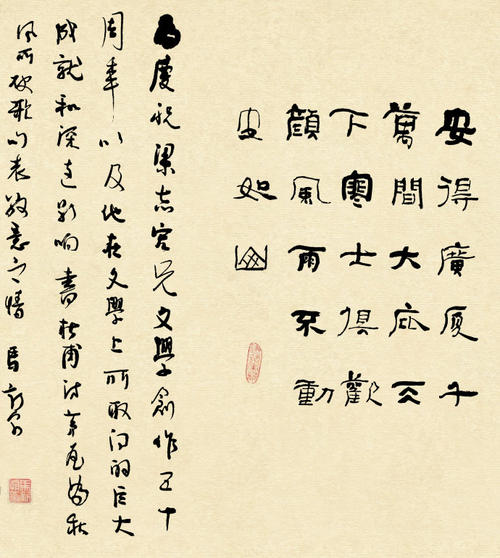 安得廣厦千
萬間大庇天
下寒士俱歡
顏風雨不動
安如山
為慶祝梁志宏兄文學創作五十
周年以及他在文學上所取得的巨大
成就和深遠影响書杜甫詩茅屋為秋
風所破歌句表敬意之情 馬